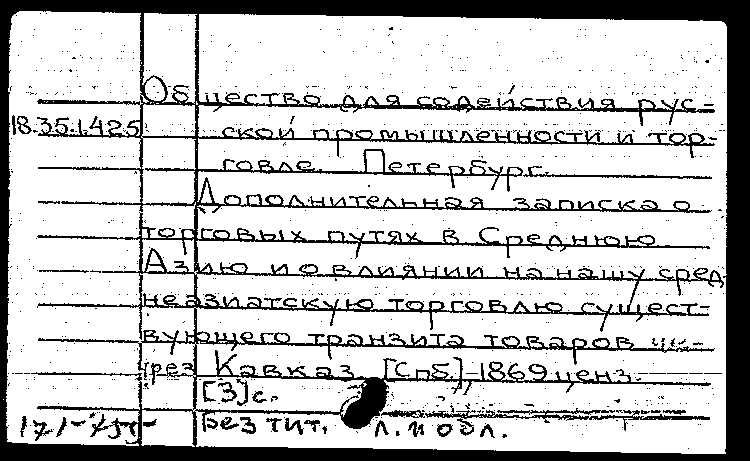 Общество для содействия рус-
18.35.1.425 ской промышленности и тор-
говле. Петербург.
Дополнительная записка о
торговых путях в Среднюю
Азию и о влиянии на нашу сред
неазиатскую торговлю сущест-
вующего транзита товаров че-
рез Кавказ. [Спб.], 1869 ценз.
[3]с.
171-755 Без тит. л. и обл.